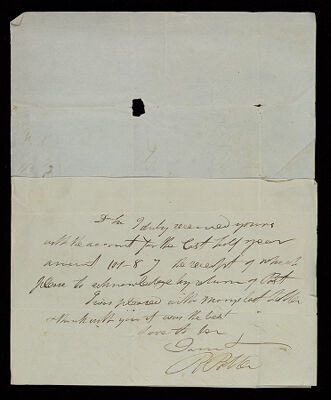 I duly received yours
with the account for the last half year
amount 101-8-7 the receipt of which
please to acknowledge by return of Post
I was pleased with Marys last letter
& think with you it was the best
love to her